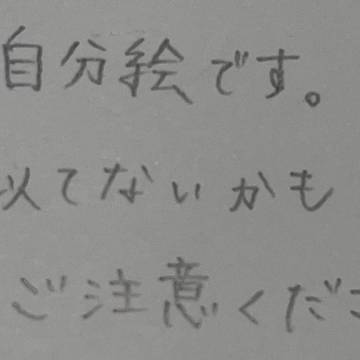 自分絵です。
似てないかも
ご注意くださ